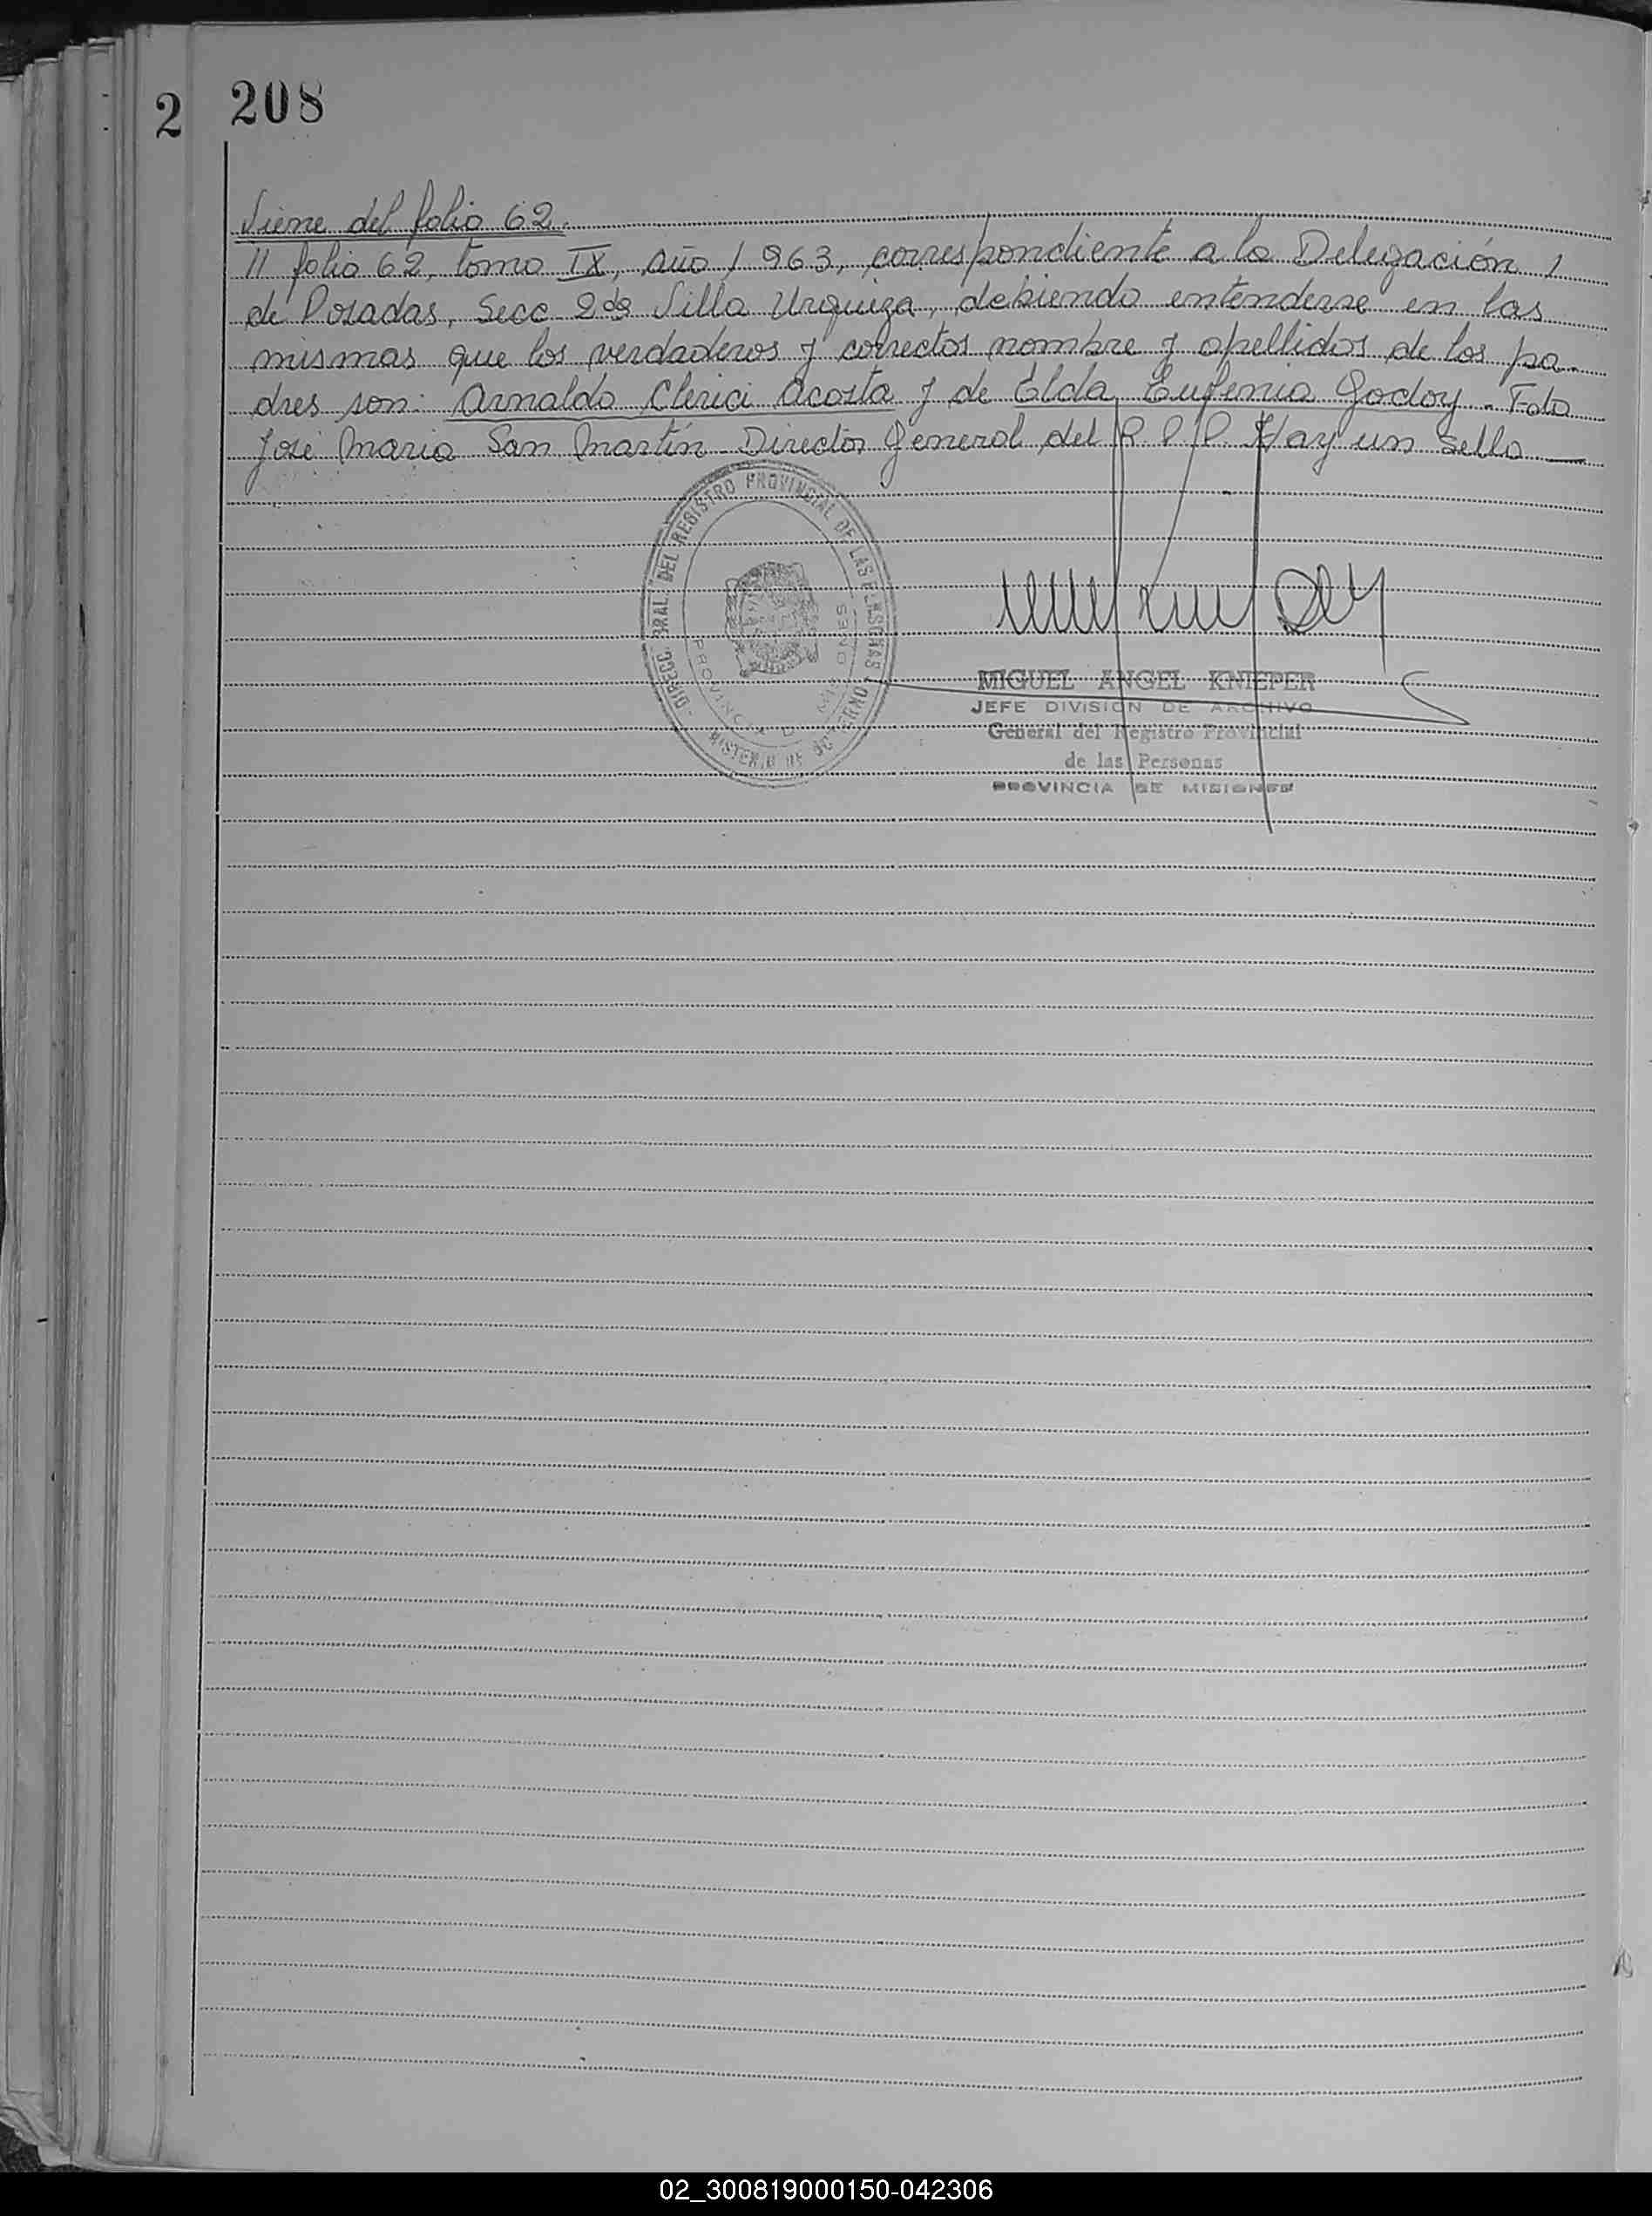 2 208
Viene del folio 62.
11 folio 62, tomo IX, año 1963, correspondiente a la Delegación 1
de Posadas, Secc 2da Villa Urquiza, debiendo entenderse en las
mismas que los verdaderos y correctos nombre y apellidos de los pa-
dres son: Arnaldo Clerici Acosta y de Elda Eugenia Godoy. - Fdo
José Maria San Martín - Director General del R.P.P. Hay un sello —
DIRECC. GRAL. DEL REGISTRO PROVINCIAL DE LAS PERSONAS
PROVINCIA DE MISIONES
MINISTERIO DE GOBIERNO
MIGUEL ANGEL KNIEPER
JEFE DIVISION DE ARCHIVO
General del Registro Provincial
de las Personas
PROVINCIA DE MISIONES
02_300819000150-042306